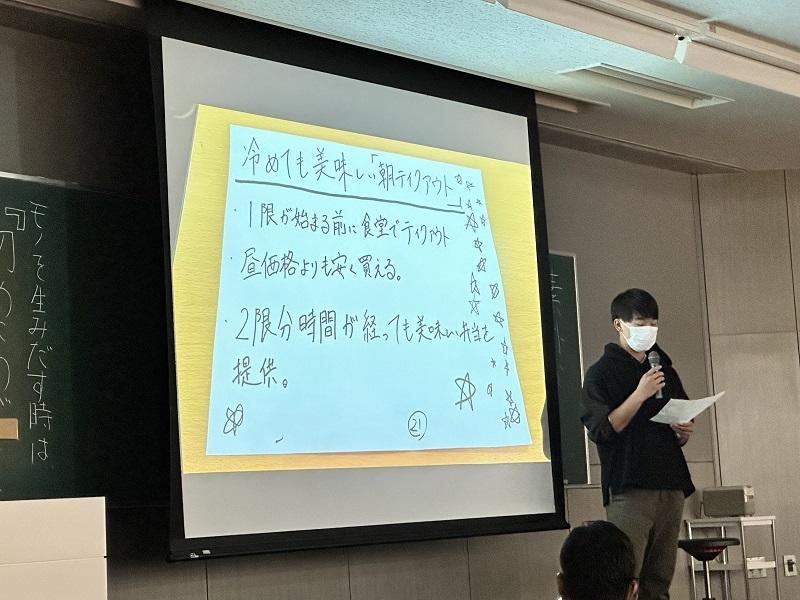 冷めても美味しい「朝テイクアウト」
・1限が始まる前に食堂でテイクアウト
昼価格よりも安く買える。
・2限分時間が経っても美味しい弁当を
提供。
21
モノを生みだす時は、